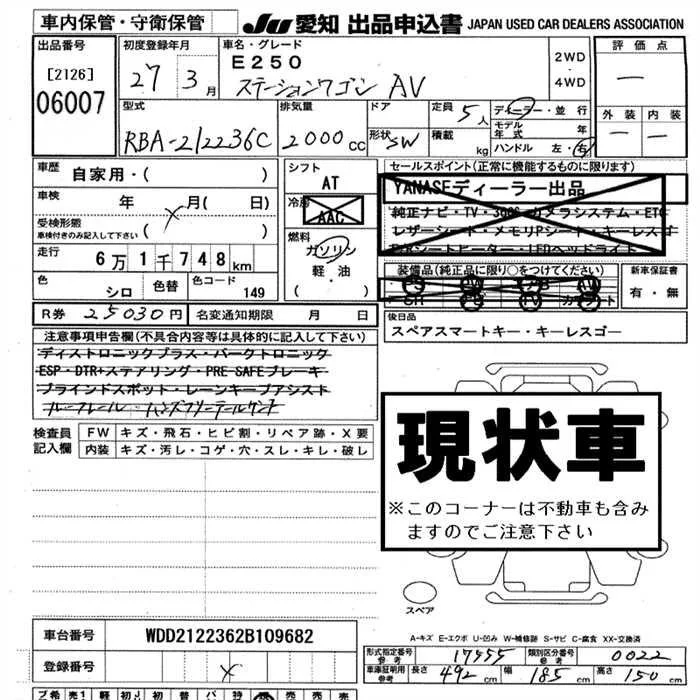 車内保管・守衛保管
JU 愛知 出品申込書 JAPAN USED CAR DEALERS ASSOCIATION
出品番号
[2126]
06007
初度登録年月
27 3月
車名・グレード
E250
ステーションワゴン AV
2WD
・
4WD
評価点
—
外装 内装
— —
型式
RBA-212236C
排気量
2000cc
ドア
形状 SW
定員 5人
積載 kg
ディーラー・並行
モデル年式 年
ハンドル 左・右
車歴
自家用・( )
車検 年 月( 日)
受検形態
車検付きのみ記入して下さい ( )
走行
6万1千748km
色 シロ
色替
色コード 149
シフト
AT
冷房
AAC
燃料
ガソリン
軽・油
( )
セールスポイント(正常に機能するものに限ります)
YANASEディーラー出品
純正ナビ・TV・360°カメラシステム・ETC
レザーシート・メモリPシート・キーレスゴ
装備品(純正品に限り○をつけてください)
新車保証書
有・無
R券 25030円
名変通知期限 月 日
後日品
スペアスマートキー・キーレスゴー
注意事項申告欄(不具合内容等は具体的に記入して下さい)
ディストロニックプラス・パークトロニック
ESP・DTR+ステアリング・PRE-SAFEブレーキ
ブラインドスポット・レーンキープアシスト
検査員
記入欄
FW キズ・飛石・ヒビ割・リペア跡・X要
内装 キズ・汚レ・コゲ・穴・スレ・キレ・破レ
現状車
※このコーナーは不動車も含み
ますのでご注意下さい
スペア
A-キズ E-エクボ U-凹み W-補修跡 S-サビ C-腐食 XX-交換済
車台番号 WDD2122362B109682
登録番号
形式指定番号 参考 17555
類別区分番号 参考 0022
車庫証明用 参考 長さ 492cm 幅 185cm 高さ 150cm